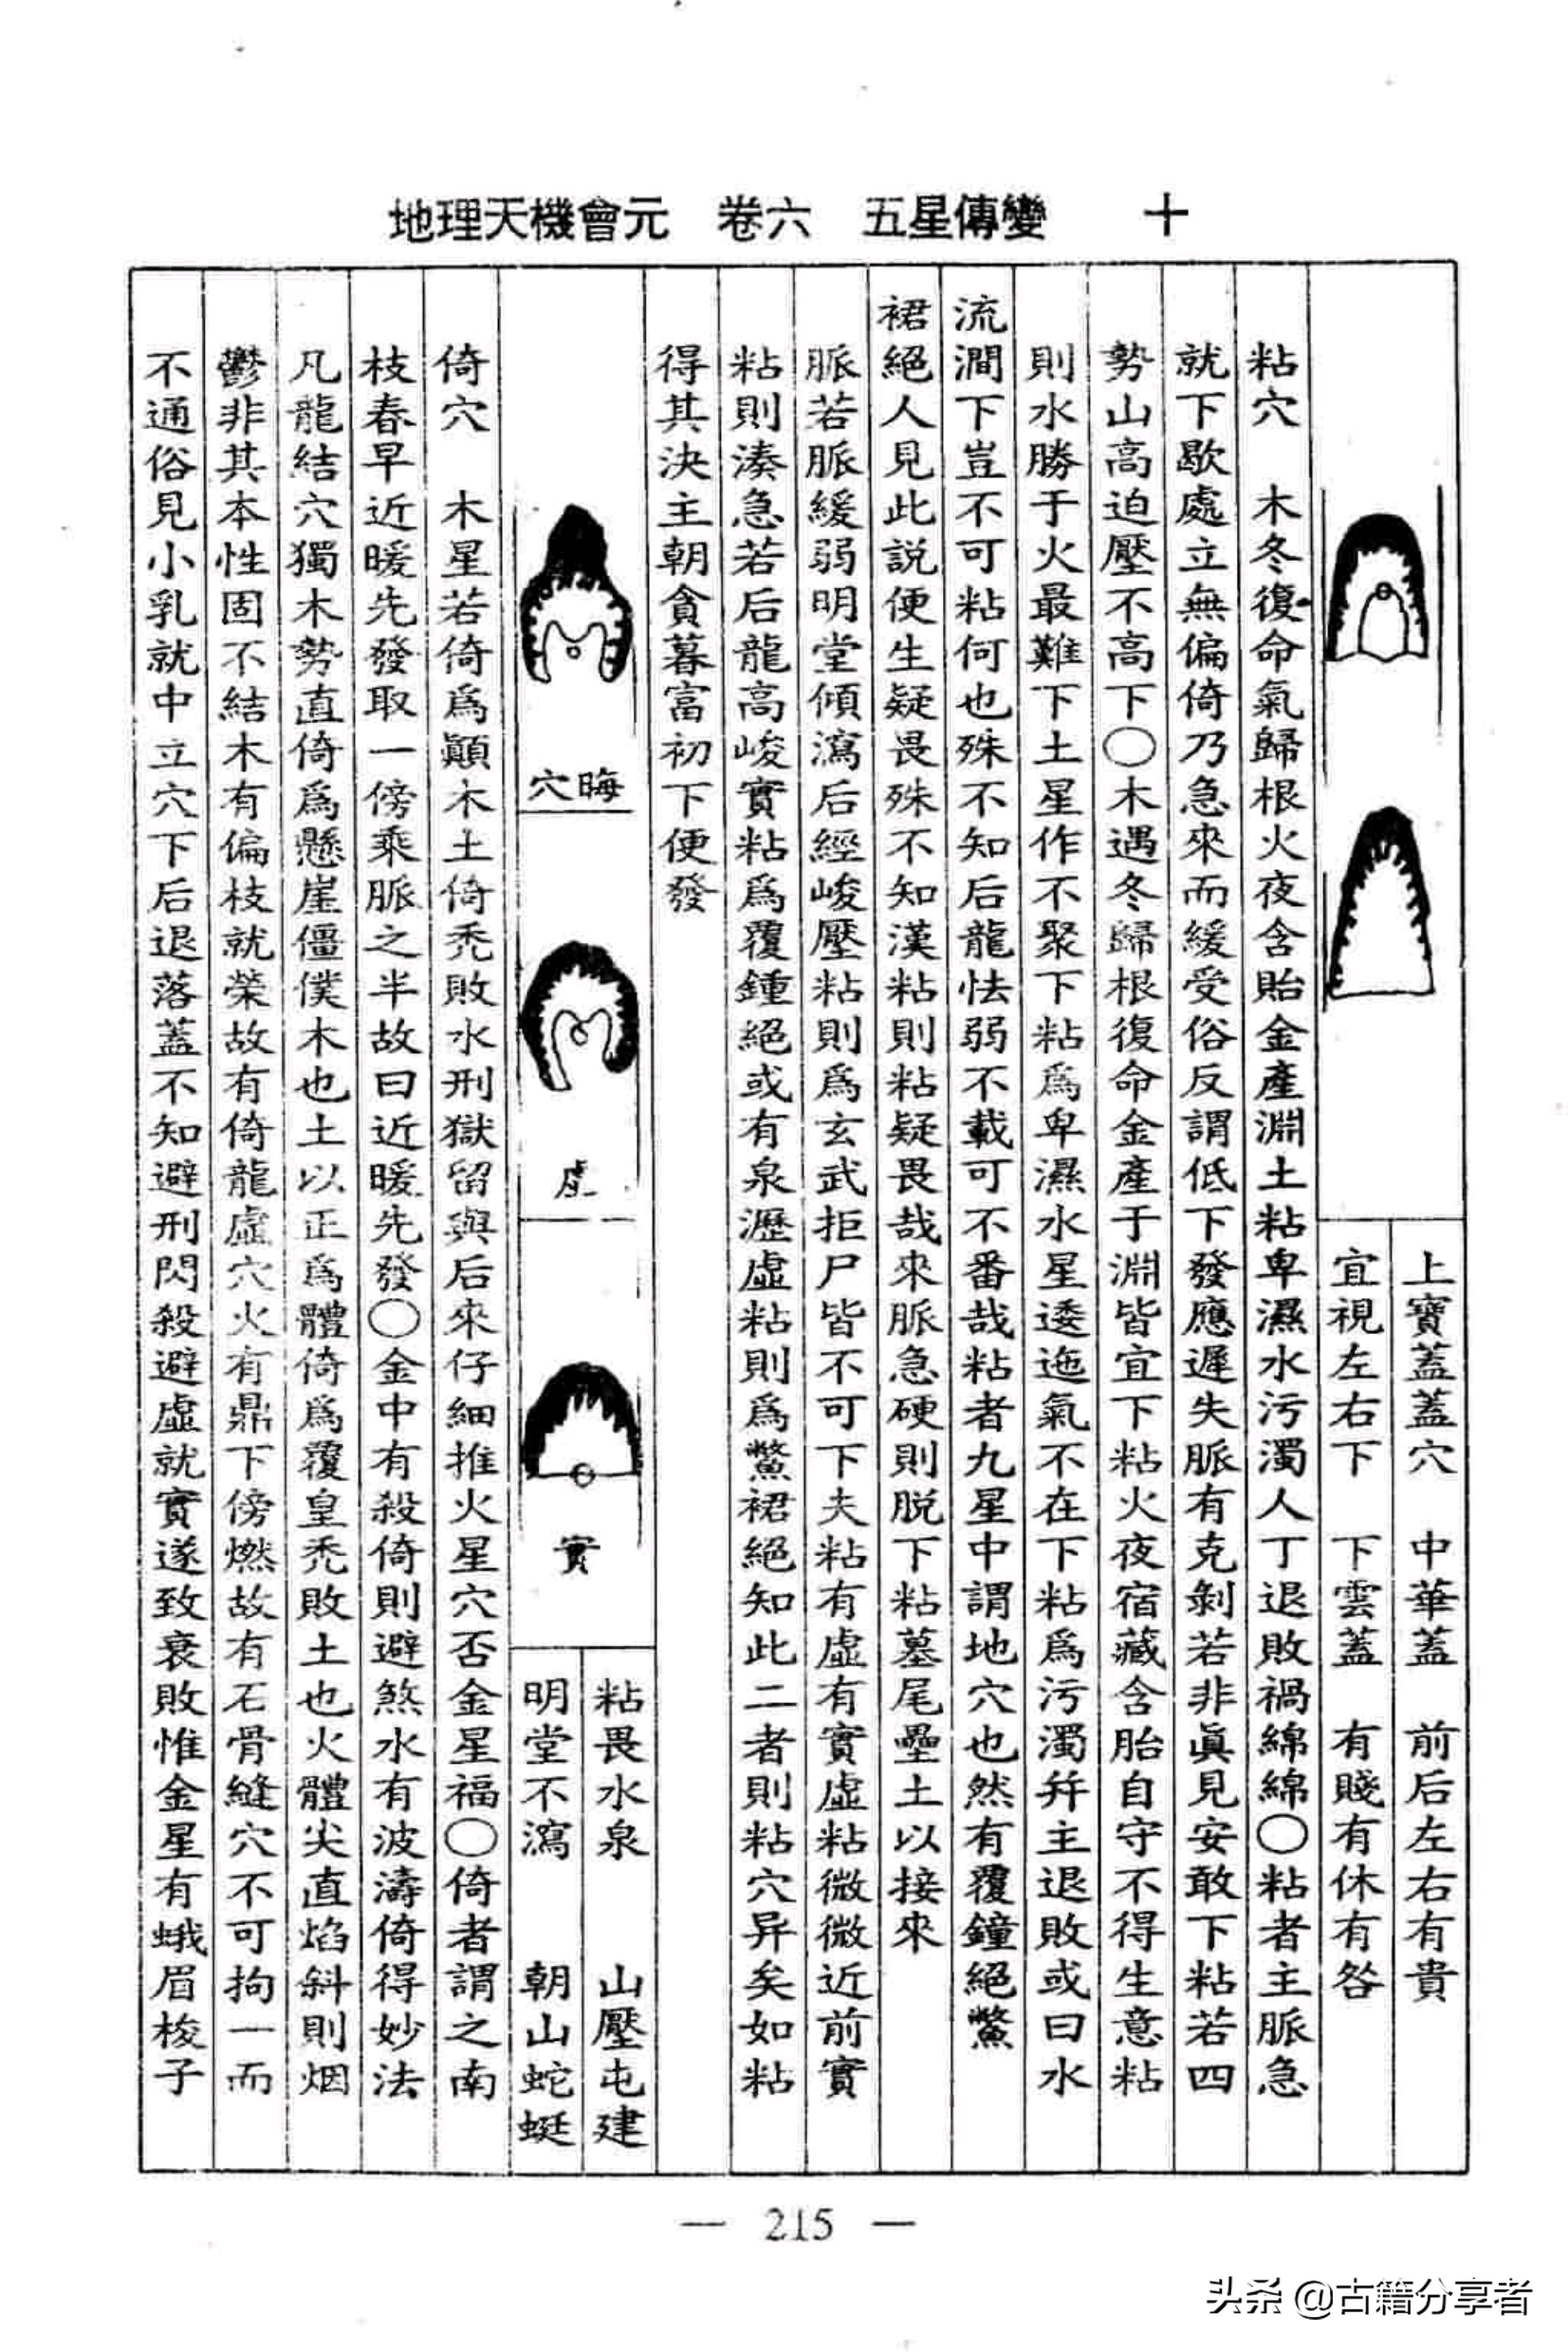 地理天機會元　卷六　五星傳變　十
上寶蓋蓋穴　中華蓋　前后左右有貴
宜視左右下　下雲蓋　有賤有休有咎
粘穴　木冬復命氣歸根火夜含貽金產淵土粘卑濕水污濁人丁退敗禍綿綿○粘者主脈急
就下歇處立無偏倚乃急來而緩受俗反謂低下發應遲失脈有克剝若非眞見安敢下粘若四
勢山高迫壓不高下○木遇冬歸根復命金產于淵皆宜下粘火夜宿藏含胎自守不得生意粘
則水勝于火最難下土星作不聚下粘爲卑濕水星逶迤氣不在下粘爲污濁幷主退敗或曰水
流澗下豈不可粘何也殊不知后龍怯弱不載可不番哉粘者九星中謂地穴也然有覆鐘絕鱉
裙絕人見此説便生疑畏殊不知漢粘則粘疑畏哉來脈急硬則脱下粘墓尾壘土以接來
脈若脈緩弱明堂傾瀉后經峻壓粘則爲玄武拒尸皆不可下夫粘有虛有實虛粘微微近前實
粘則湊急若后龍高峻實粘爲覆鍾絕或有泉瀝虛粘則爲鱉裙絕知此二者則粘穴异矣如粘
得其決主朝貪暮富初下便發
穴晦
虛
實
粘畏水泉　山壓屯建
明堂不瀉　朝山蛇蜓
倚穴　木星若倚爲顚木土倚禿敗水刑獄留與后來仔細推火星穴否金星福○倚者謂之南
枝春早近暖先發取一傍乘脈之半故曰近暖先發○金中有殺倚則避煞水有波濤倚得妙法
凡龍結穴獨木勢直倚爲懸崖僵僕木也土以正爲體倚爲覆皇禿敗土也火體尖直焰斜則烟
鬱非其本性固不結木有偏枝就榮故有倚龍虛穴火有鼎下傍燃故有石骨縫穴不可拘一而
不通俗見小乳就中立穴下后退落蓋不知避刑閃殺避虛就實遂致衰敗惟金星有蛾眉梭子
— 215 —
头条 @古籍分享者